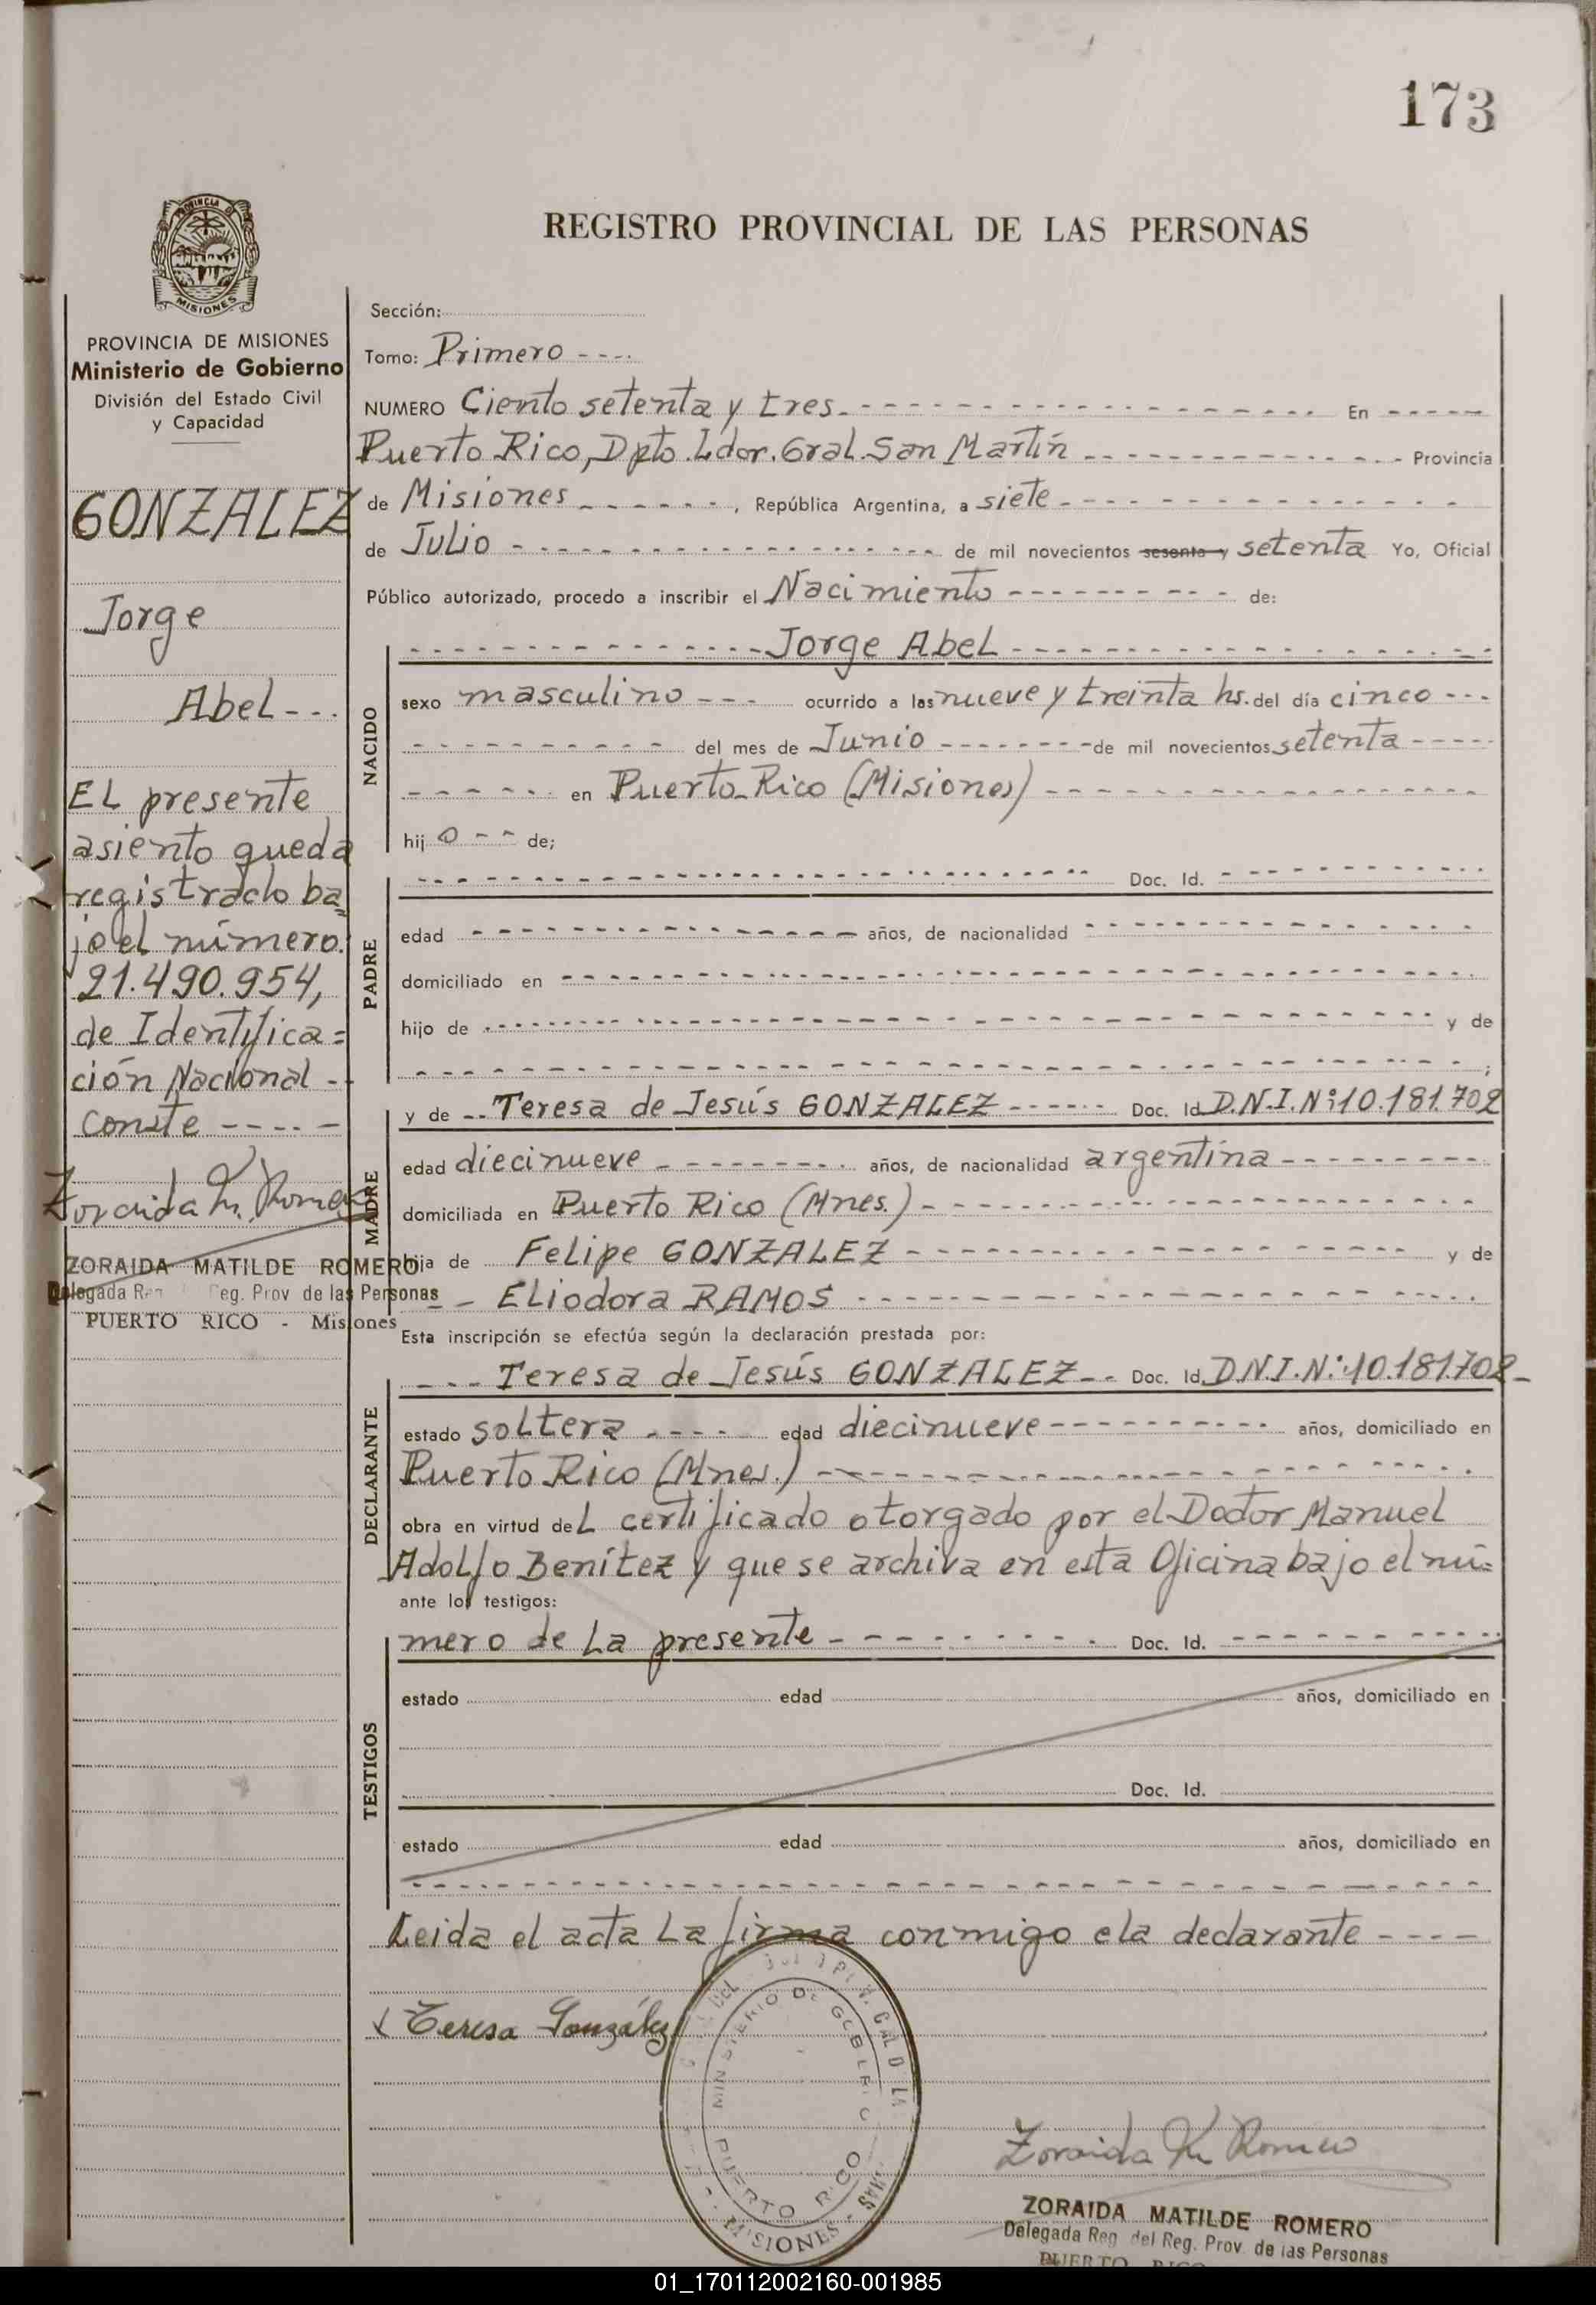 173
REGISTRO PROVINCIAL DE LAS PERSONAS
PROVINCIA DE
MISIONES
PROVINCIA DE MISIONES
Ministerio de Gobierno
División del Estado Civil
y Capacidad
GONZALEZ
Jorge
Abel ---
EL presente
asiento queda
registrado ba=
jo el número
21.490.954,
de Identifica=
ción Nacional -
Conste -----
Zoraida M. Romero
ZORAIDA MATILDE ROMERO
Delegada Reg. Prov de las Personas
PUERTO RICO - Misiones
Sección:
Tomo: Primero ----
NUMERO Ciento setenta y tres. --- En -----
Puerto Rico, Dpto. Ldor. Gral. San Martín --- Provincia
de Misiones ------, República Argentina, a siete ---
de Julio --- de mil novecientos sesenta y setenta Yo, Oficial
Público autorizado, procedo a inscribir el Nacimiento --- de:
NACIDO
--- Jorge Abel ---
sexo masculino --- ocurrido a las nueve y treinta hs. del día cinco ---
--- del mes de Junio --- de mil novecientos setenta ---
--- en Puerto Rico (Misiones) ---
hij o -- de;
PADRE
--- Doc. Id. ---
edad --- años, de nacionalidad ---
domiciliado en ---
hijo de --- y de
--- ;
MADRE
y de -- Teresa de Jesús GONZALEZ --- Doc. Id. D.N.I. Nº: 10.181.702
edad diecinueve --- años, de nacionalidad argentina ---
domiciliada en Puerto Rico (Mnes.) ---
hija de Felipe GONZALEZ --- y de
-- Eliodora RAMOS ---
Esta inscripción se efectúa según la declaración prestada por:
DECLARANTE
--- Teresa de Jesús GONZALEZ -- Doc. Id. D.N.I. Nº: 10.181.702 -
estado soltera ---- edad diecinueve --- años, domiciliado en
Puerto Rico (Mnes.) ---
obra en virtud de L certificado otorgado por el Doctor Manuel
Adolfo Benítez y que se archiva en esta Oficina bajo el nú=
ante los testigos:
TESTIGOS
mero de La presente --- Doc. Id. ---
estado edad años, domiciliado en
Doc. Id.
estado edad años, domiciliado en
---
Leida el acta La firma conmigo ela declarante ----
x Teresa González
MINISTERIO DE GOBIERNO
PUERTO RICO
MISIONES
Zoraida M Romero
ZORAIDA MATILDE ROMERO
Delegada Reg del Reg. Prov de las Personas
PUERTO RICO
01_170112002160-001985